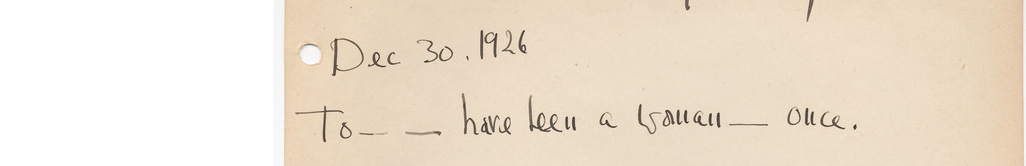 Dec 30. 1926
To — — have been a woman — once.